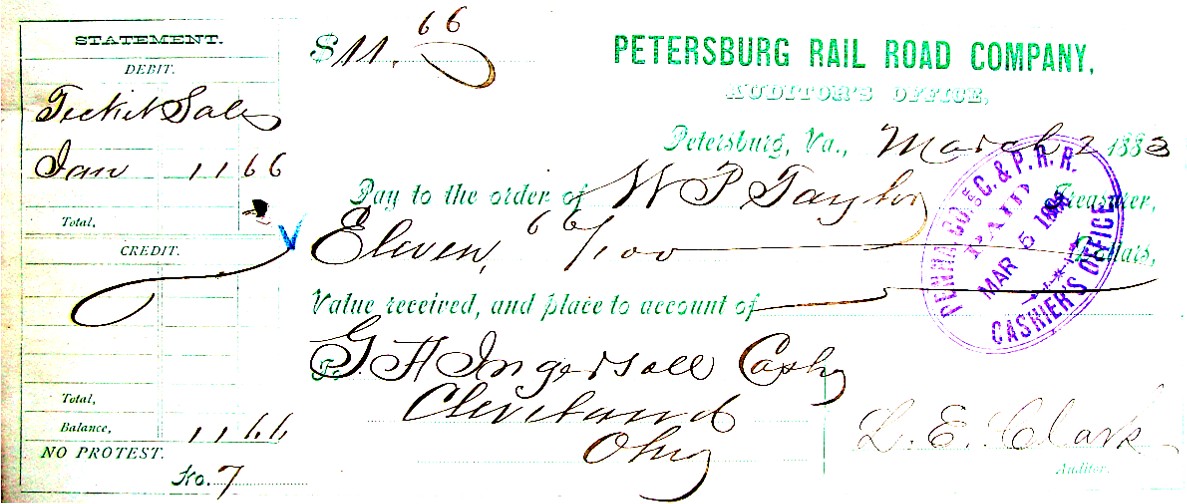 STATEMENT.
DEBIT.
Ticket Sales
Jan 11 66
Total,
CREDIT.
Total,
Balance, 11 66
NO PROTEST.
No. 7
$11. 66
PETERSBURG RAIL ROAD COMPANY,
AUDITOR'S OFFICE,
Petersburg, Va., March 2 1883
Pay to the order of W P Taylor Treasurer,
Eleven, 66/100 Dollars,
Value received, and place to account of
To G H Ingersoll Cash
Cleveland
Ohio
L. E. Clark
Auditor.
PENNA. CO. & C. & P. R. R.
PAID
MAR 5 188
CASHIER'S OFFICE